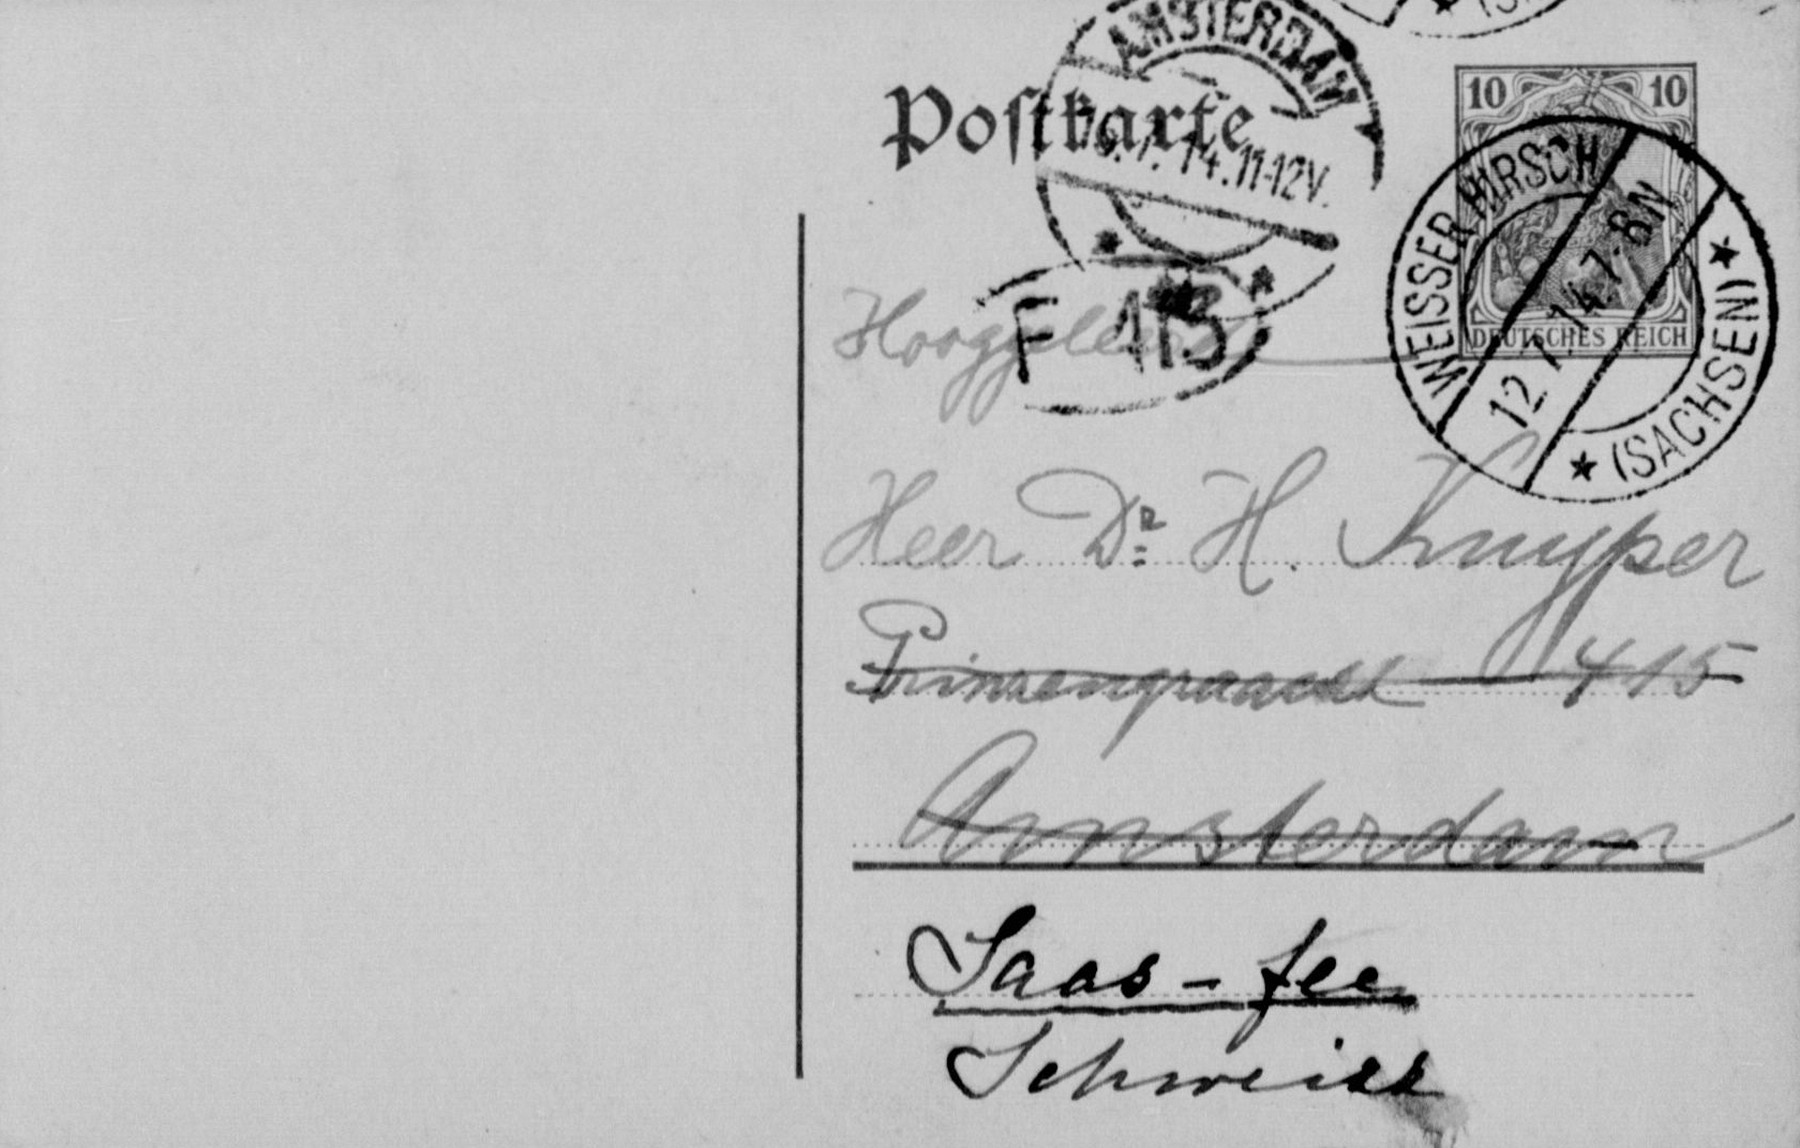 AMSTERDAM
Postkarte
7. 14. 11-12V.
10 10
DEUTSCHES REICH
WEISSER HIRSCH
12.7.14.7-8N
(SACHSEN)
F 113
Heer Dr H. Kuyper
Prinsengracht 415
Amsterdam
Saas-fee
Schweiss